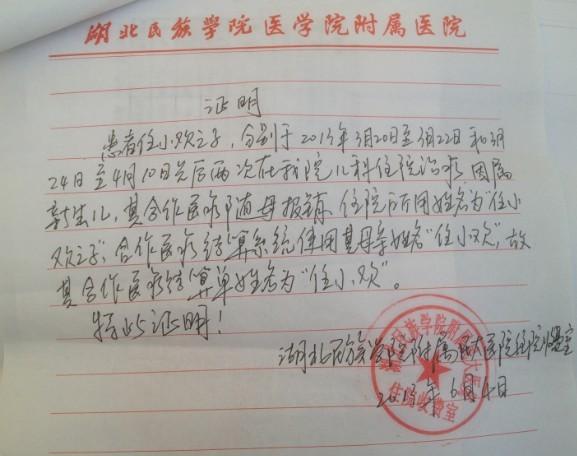 湖北民族学院医学院附属医院
证明
患者任小欢之子，分别于2013年3月20日至3月22日和3月
24日至4月10日先后两次在我院儿科住院治疗，因属
新生儿，其合作医疗随母报销，住院所用姓名为“任小
欢之子”，合作医疗结算系统使用其母亲姓名“任小欢”，故
其合作医疗结算单姓名为“任小欢”。
特此证明！
湖北民族学院附属民大医院住院收费室
2013年6月4日
住院收费室